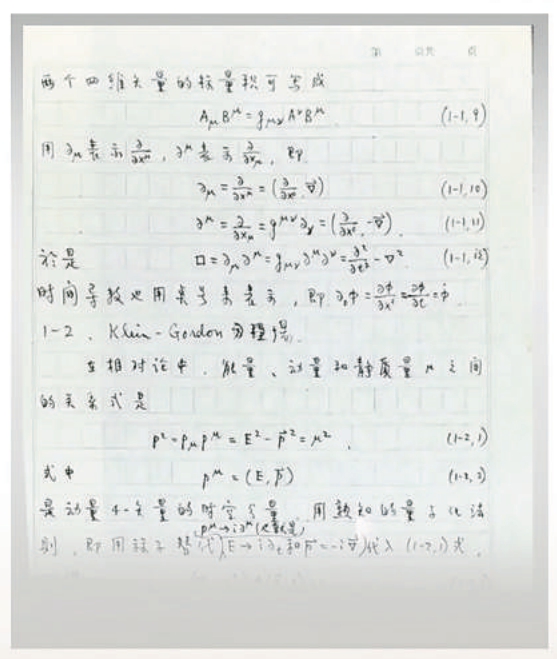 第 页共 页
两个四维矢量的标量积可写成
A_μ B^μ = g_{μν} A^ν B^μ (1-1, 9)
用 ∂_μ 表示 ∂/∂x^μ, ∂^μ 表示 ∂/∂x_μ, 即
∂_μ = ∂/∂x^μ = (∂/∂x^0, ∇⃗) (1-1, 10)
∂^μ = ∂/∂x_μ = g^{μν} ∂_ν = (∂/∂x^0, -∇⃗) (1-1, 11)
於是 □ = ∂_μ ∂^μ = g_{μν} ∂^μ ∂^ν = ∂²/∂t² - ∇² (1-1, 12)
时间导数也用点号来表示, 即 ∂_0 φ = ∂φ/∂x^0 = ∂φ/∂t = φ̇
1-2. Klein-Gordon 方程
在相对论中, 能量、动量和静质量 μ 之间
的关系式是
p² = p_μ p^μ = E² - p⃗² = μ², (1-2, 1)
式中 p^μ = (E, p⃗) (1-2, 2)
是动量4-矢量的时空分量. 用熟知的量子化法
p^μ → i∂^μ
则, 即用算子替代(E → i∂_t 和 p⃗ = -i∇⃗)代入 (1-2, 1) 式,